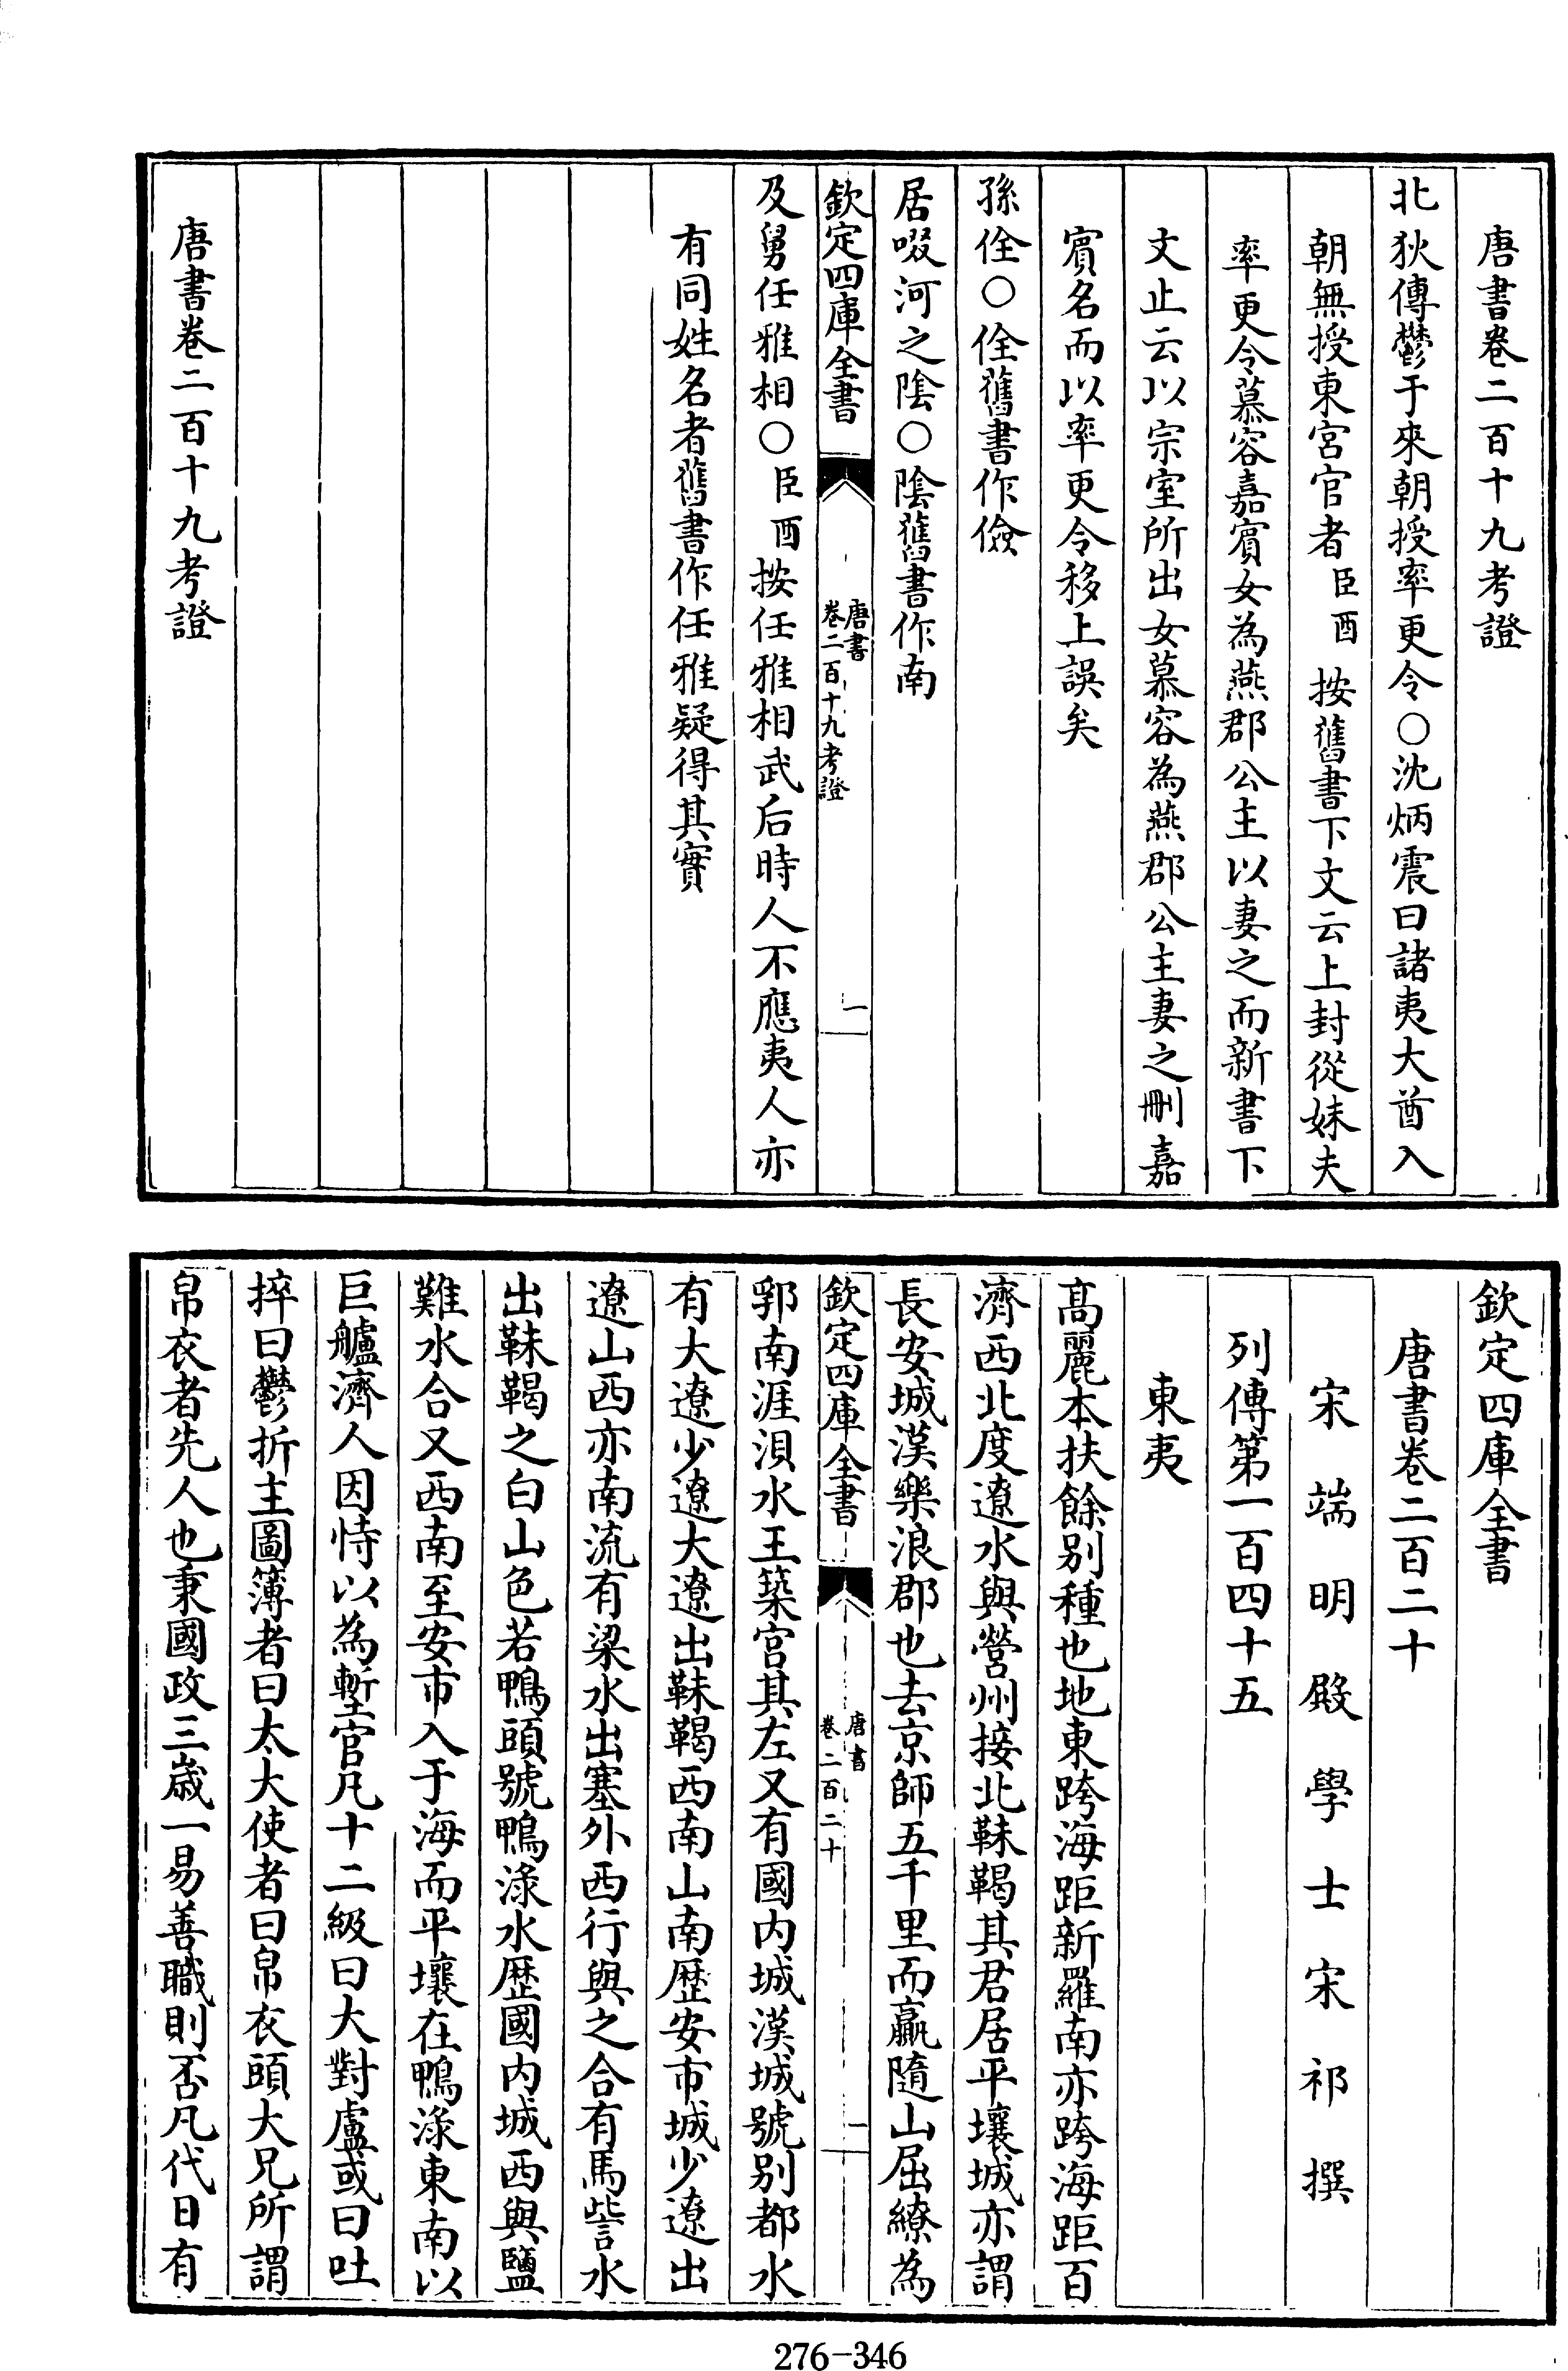 唐書卷二百十九考證
北狄傳鬱于來朝授率更令○沈炳震曰諸夷大酋入
朝無授東宮官者臣酉按舊書下文云上封從妹夫
率更令慕容嘉賓女為燕郡公主以妻之而新書下
文止云以宗室所出女慕容為燕郡公主妻之刪嘉
賓名而以率更令移上誤矣
孫佺○佺舊書作儉
居啜河之陰○陰舊書作南
欽定四庫全書 唐書卷二百十九考證 一
及舅任雅相○臣酉按任雅相武后時人不應夷人亦
有同姓名者舊書作任雅疑得其實
唐書卷二百十九考證
欽定四庫全書
唐書卷二百二十
宋端明殿學士宋祁撰
列傳第一百四十五
東夷
高麗本扶餘別種也地東跨海距新羅南亦跨海距百
濟西北度遼水與營州接北靺鞨其君居平壤城亦謂
長安城漢樂浪郡也去京師五千里而贏隨山屈繚為
欽定四庫全書 唐書卷二百二十 一
郛南涯浿水王築宮其左又有國內城漢城號別都水
有大遼少遼大遼出靺鞨西南山南歷安市城少遼出
遼山西亦南流有梁水出塞外西行與之合有馬訾水
出靺鞨之白山色若鴨頭號鴨淥水歷國內城西與鹽
難水合又西南至安市入于海而平壤在鴨淥東南以
巨艫濟人因恃以為塹官凡十二級曰大對盧或曰吐
捽曰鬱折主圖簿者曰太大使者曰帛衣頭大兄所謂
帛衣者先人也秉國政三歲一易善職則否凡代日有
276-346